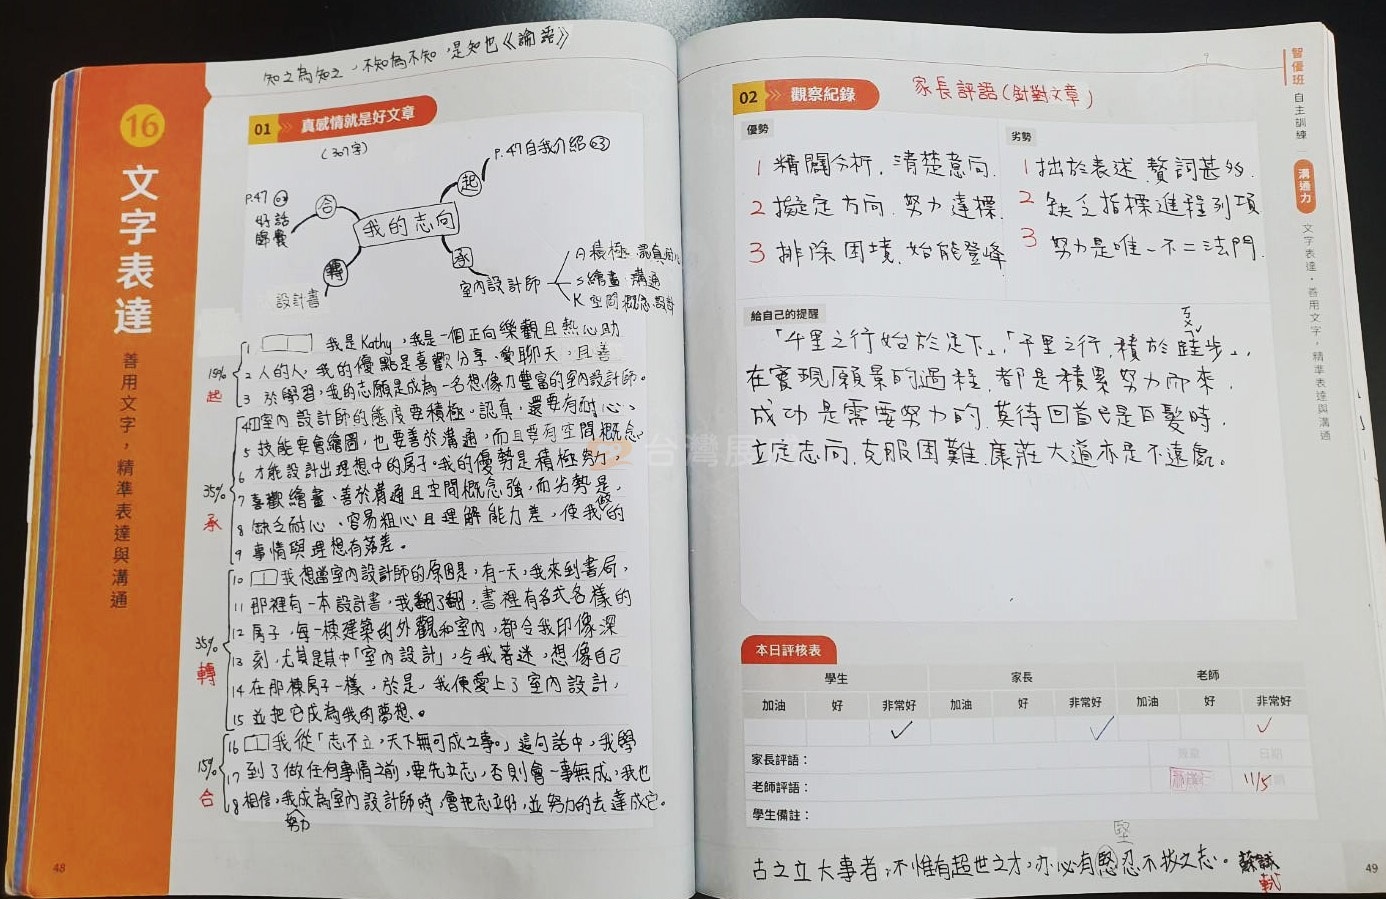 知之為知之，不知為不知，是知也《論語》
16
文字表達
善用文字，精準表達與溝通
48
01 真感情就是好文章
(307字)
P.47自我介紹
起
P.47
好話
合
我的志向
承
轉
設計書
室內設計師
A積極
S繪畫 溝通
K空間概念 設計
19%
起
1 我是Kathy，我是一個正向樂觀且熱心助
2 人的人，我的優點是喜歡分享、愛聊天，且善
3 於學習，我的志願是成為一名想像力豐富的室內設計師。
35%
承
4 室內設計師的態度要積極、認真，還要有耐心、
5 技能要會繪圖，也要善於溝通，而且要有空間概念，
6 才能設計出理想中的房子。我的優勢是積極努力，
7 喜歡繪畫、善於溝通且空間概念強，而劣勢是，
8 缺乏耐心、容易粗心且理解能力差，使我做的
9 事情與理想有落差。
35%
轉
10 我想當室內設計師的原因是，有一天，我來到書局，
11 那裡有一本設計書，我翻了翻，書裡有各式各樣的
12 房子，每一棟建築的外觀和室內，都令我印像深
13 刻，尤其是其中「室內設計」，令我著迷，想像自己
14 在那棟房子一樣，於是，我便愛上了室內設計，
15 並把它成為我的夢想。
15%
合
16 我從「志不立，天下無可成之事。」這句話中，我學
17 到了做任何事情之前，要先立志，否則會一事無成，我也
18 相信，我努力成為室內設計師時，會把志立好，並努力的去達成它。
台灣展
02 觀察紀錄
家長評語(針對文章)
優勢
1 精闢分析，清楚意向.
2 擬定方向，努力達標.
3 排除困境，始能登峰
劣勢
1 拙於表述，贅詞甚多.
2 缺乏指標進程列項
3 努力是唯一不二法門.
給自己的提醒
「千里之行始於足下」，「千里之行，積於跬步」，
在實現願景的過程，都是積累努力而來，
成功是需要努力的，莫待回首已是白髮時，
立定志向，克服困難，康莊大道亦是不遠處。
本日評核表
學生 家長 老師
加油 好 非常好 加油 好 非常好 加油 好 非常好
家長評語：
老師評語： 11/5
學生備註：
堅
古之立大事者，不惟有超世之才，亦必有堅忍不拔之志。蘇軾
軾
智優班 自主訓練
溝通力
文字表達，善用文字，精準表達與溝通
49